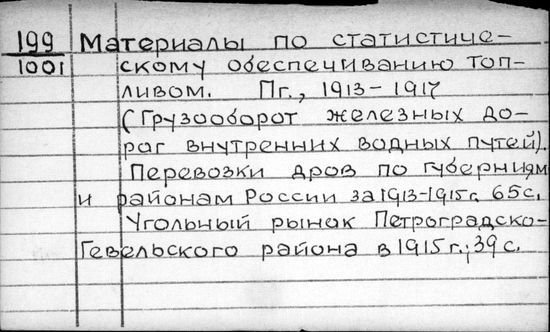 199 Материалы по статистиче-
1001 скому обеспечиванию топ-
ливом. Пг., 1913-1917
(Грузооборот железных до-
рог внутренних водных путей).
Перевозки дров по губерниям
и районам России за 1913-1915 г. 65с.
Угольный рынок Петроградско-
Гевельского района в 1915 г.; 39 с.